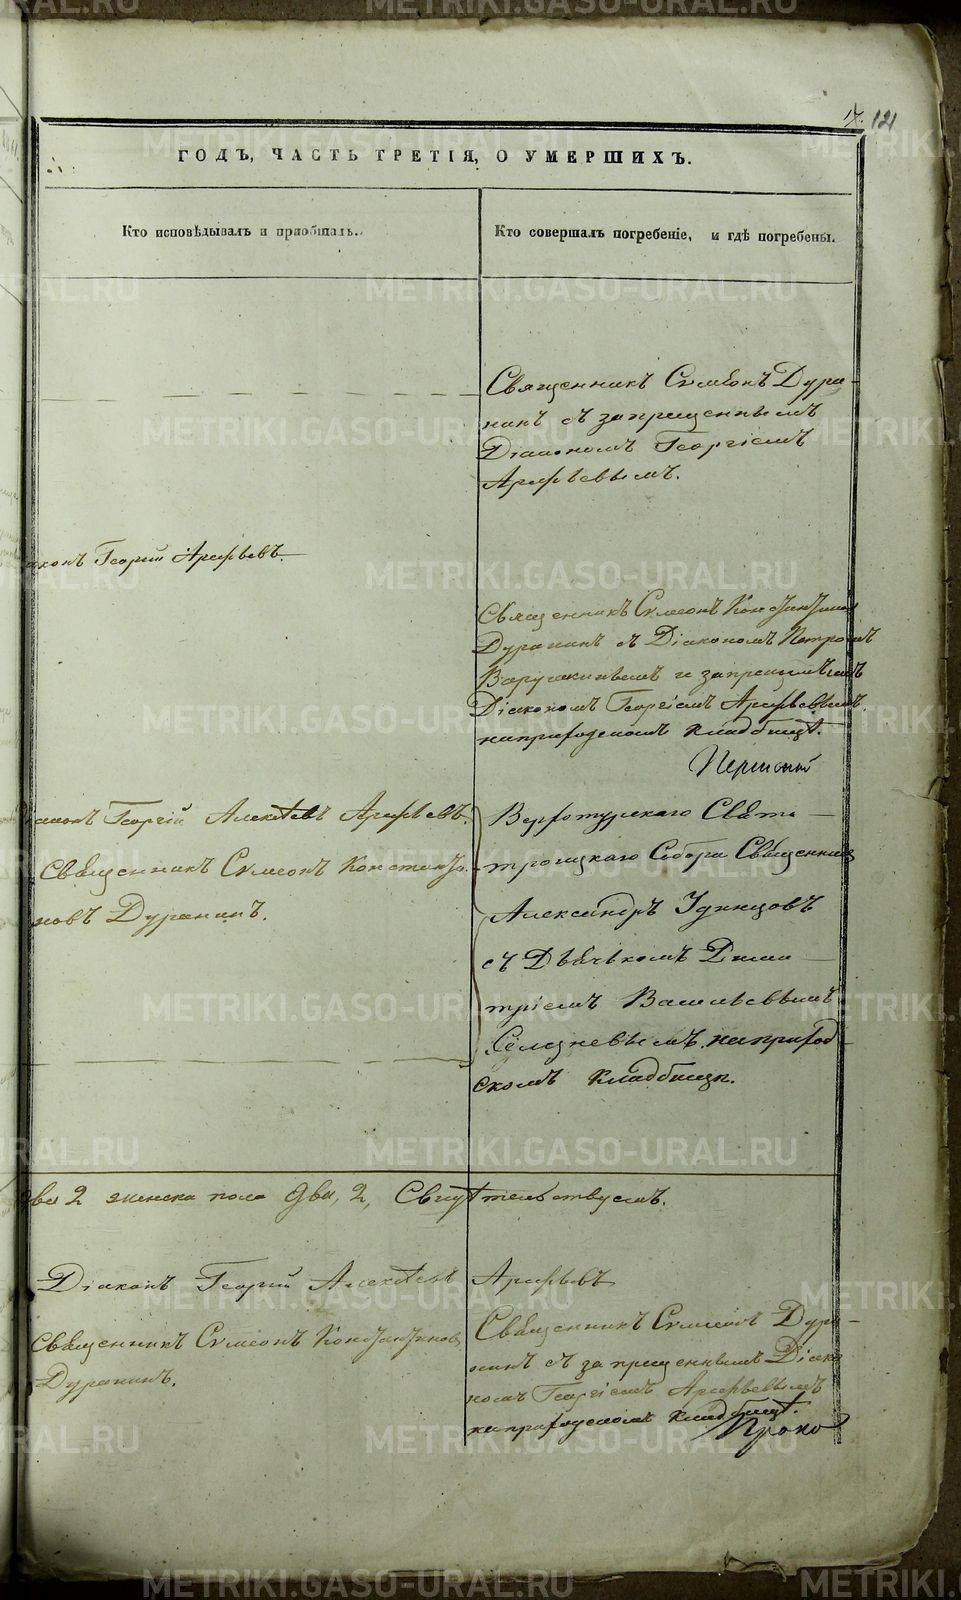 17. 121
ГОДЪ, ЧАСТЬ ТРЕТІЯ, О УМЕРШИХЪ.
Кто исповѣдывалъ и пріобщалъ.
Кто совершалъ погребеніе, и гдѣ погребены.
Священникъ Сѵмеонъ Дура-
нинъ съ запрещеннымъ
Діакономъ Георгіемъ
Арефьевымъ.
Георгій Арефьевъ.
Священникъ Сѵмеонъ
Дуранинъ съ Діакономъ Петромъ
и
Діакономъ Георгіемъ Арефьевымъ
на приходскомъ кладбищѣ.
Георгій Алексѣевъ Арефьевъ.
Священникъ Сѵмеонъ Константи-
новъ Дуранинъ.
Верхотурскаго Свято-
троицкаго Собора Священникъ
Александръ Удинцовъ
съ Дьячкомъ Дими-
тріемъ Васильевымъ
Селезневымъ. на приход-
скомъ кладбищѣ.
2 женска пола два, 2, Свидѣтельствуемъ.
Діаконъ Георгій Алексѣевъ Арефьевъ
Священникъ Сѵмеонъ Константиновъ
Дуранинъ.
Священникъ Сѵмеонъ Дура-
нинъ съ запрещеннымъ Діако-
номъ Георгіемъ Арефьевымъ
на приходскомъ кладбищѣ.
METRIKI.GASO-URAL.RU